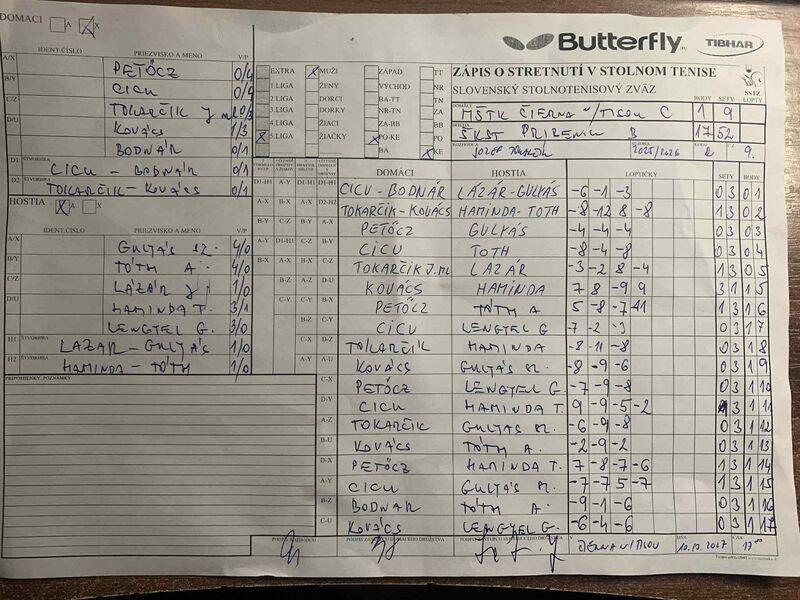 DOMACI A X
IDENT ČÍSLO PRIEZVISKO A MENO V/P
A/X PETŐCZ 0/4
B/Y CICU 0/4
C/Z TOKARČIK J ml 0/3
D/U KOVÁCS 1/3
BODNÁR 0/1
D1 ŠTVORHRA CICU - BODNÁR 0/1
D2 ŠTVORHRA TOKARČIK - KOVÁCS 0/1
HOSTIA X A X
IDENT.ČÍSLO PRIEZVISKO A MENO V/P
A/X GULYÁS SZ. 4/0
B/Y TÓTH A. 4/0
C/Z LÁZÁR J 1/0
D/U HAMINDA T. 3/1
LENGYEL G. 3/0
H1 ŠTVORHRA LÁZÁR - GULYÁS 1/0
H2 ŠTVORHRA HAMINDA - TÓTH 1/0
PRIPOMIENKY, POZNÁMKY
Butterfly TIBHAR
EXTRA X MUŽI ZÁPAD TT
1.LIGA ŽENY VÝCHOD NR
2.LIGA DORCI BA-TT TN
3.LIGA DORKY NR-TN ZA
4.LIGA ŽIACI ZA-BB BB
X 5.LIGA ŽIAČKY PO-KE PO
BA X KE
ZÁPIS O STRETNUTÍ V STOLNOM TENISE
SLOVENSKÝ STOLNOTENISOVÝ ZVÄZ
SSTZ
BODY SETY LOPTY
DOMÁCI MŠTK ČIERNA n/TISOU C 1 9
HOSTIA ŠKST PRIBENÍK B 17 52
ROZHODCA JOZEF 2025/2026 KOLO 9.
DOMÁCI HOSTIA LOPTIČKY SETY BODY
CICU - BODNÁR LÁZÁR - GULYÁS -6 -1 -3 0 3 0 1
TOKARČIK - KOVÁCS HAMINDA - TOTH -8 -12 8 -8 1 3 0 2
PETŐCZ GULYÁS -4 -4 -4 0 3 0 3
CICU TOTH -8 -4 -8 0 3 0 4
TOKARČIK J. ml LAZÁR -3 -2 8 -4 1 3 0 5
KOVÁCS HAMINDA 7 8 -9 9 3 1 1 5
PETŐCZ TÓTH A 5 -8 -7 -11 1 3 1 6
CICU LENGYEL G -7 -2 -3 0 3 1 7
TOKARČIK HAMINDA -8 -11 -8 0 3 1 8
KOVÁCS GULYÁS SZ. -8 -9 -6 0 3 1 9
C-X PETŐCZ LENGYEL G -7 -9 -8 0 3 1 10
D-Y CICU HAMINDA T. 9 -9 -5 -2 1 3 1 11
A-Z TOKARČIK GULYÁS SZ. -6 -9 -8 0 3 1 12
B-U KOVÁCS TÓTH A. -2 -9 -2 0 3 1 13
D-X PETŐCZ HAMINDA T. 7 -8 -7 -6 1 3 1 14
A-Y CICU GULYÁS SZ. -7 -7 5 -7 1 3 1 15
B-Z BODNÁR TÓTH A -9 -1 -6 0 3 1 16
C-U KOVÁCS LENGYEL G. -6 -4 -6 0 3 1 17
PODPIS ROZHODCU PODPIS ZÁSTUPCU DOMÁCEHO DRUŽSTVA V DŇA ČAS 17 00